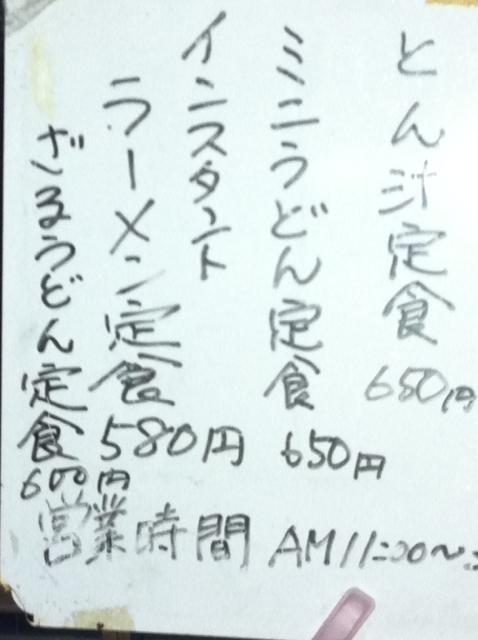 とん汁定食
650円
ミニうどん定食
650円
インスタント
ラーメン定食
580円
ざるうどん定食
600円
営業時間 AM11:00〜